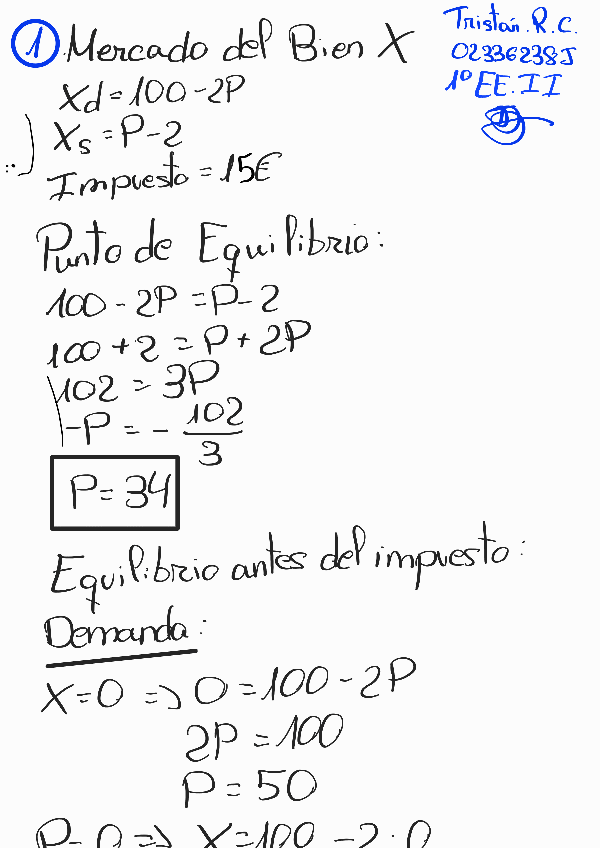 1 Mercado del Bien X
Tristán. R. C.
02336238J
1º EE.II
Xd = 100 - 2P
Xs = P - 2
Impuesto = 15€
Punto de Equilibrio:
100 - 2P = P - 2
100 + 2 = P + 2P
102 = 3P
-P = - 102/3
P = 34
Equilibrio antes del impuesto:
Demanda:
X=0 => 0 = 100 - 2P
2P = 100
P = 50
P=0 => X=100 - 2·0